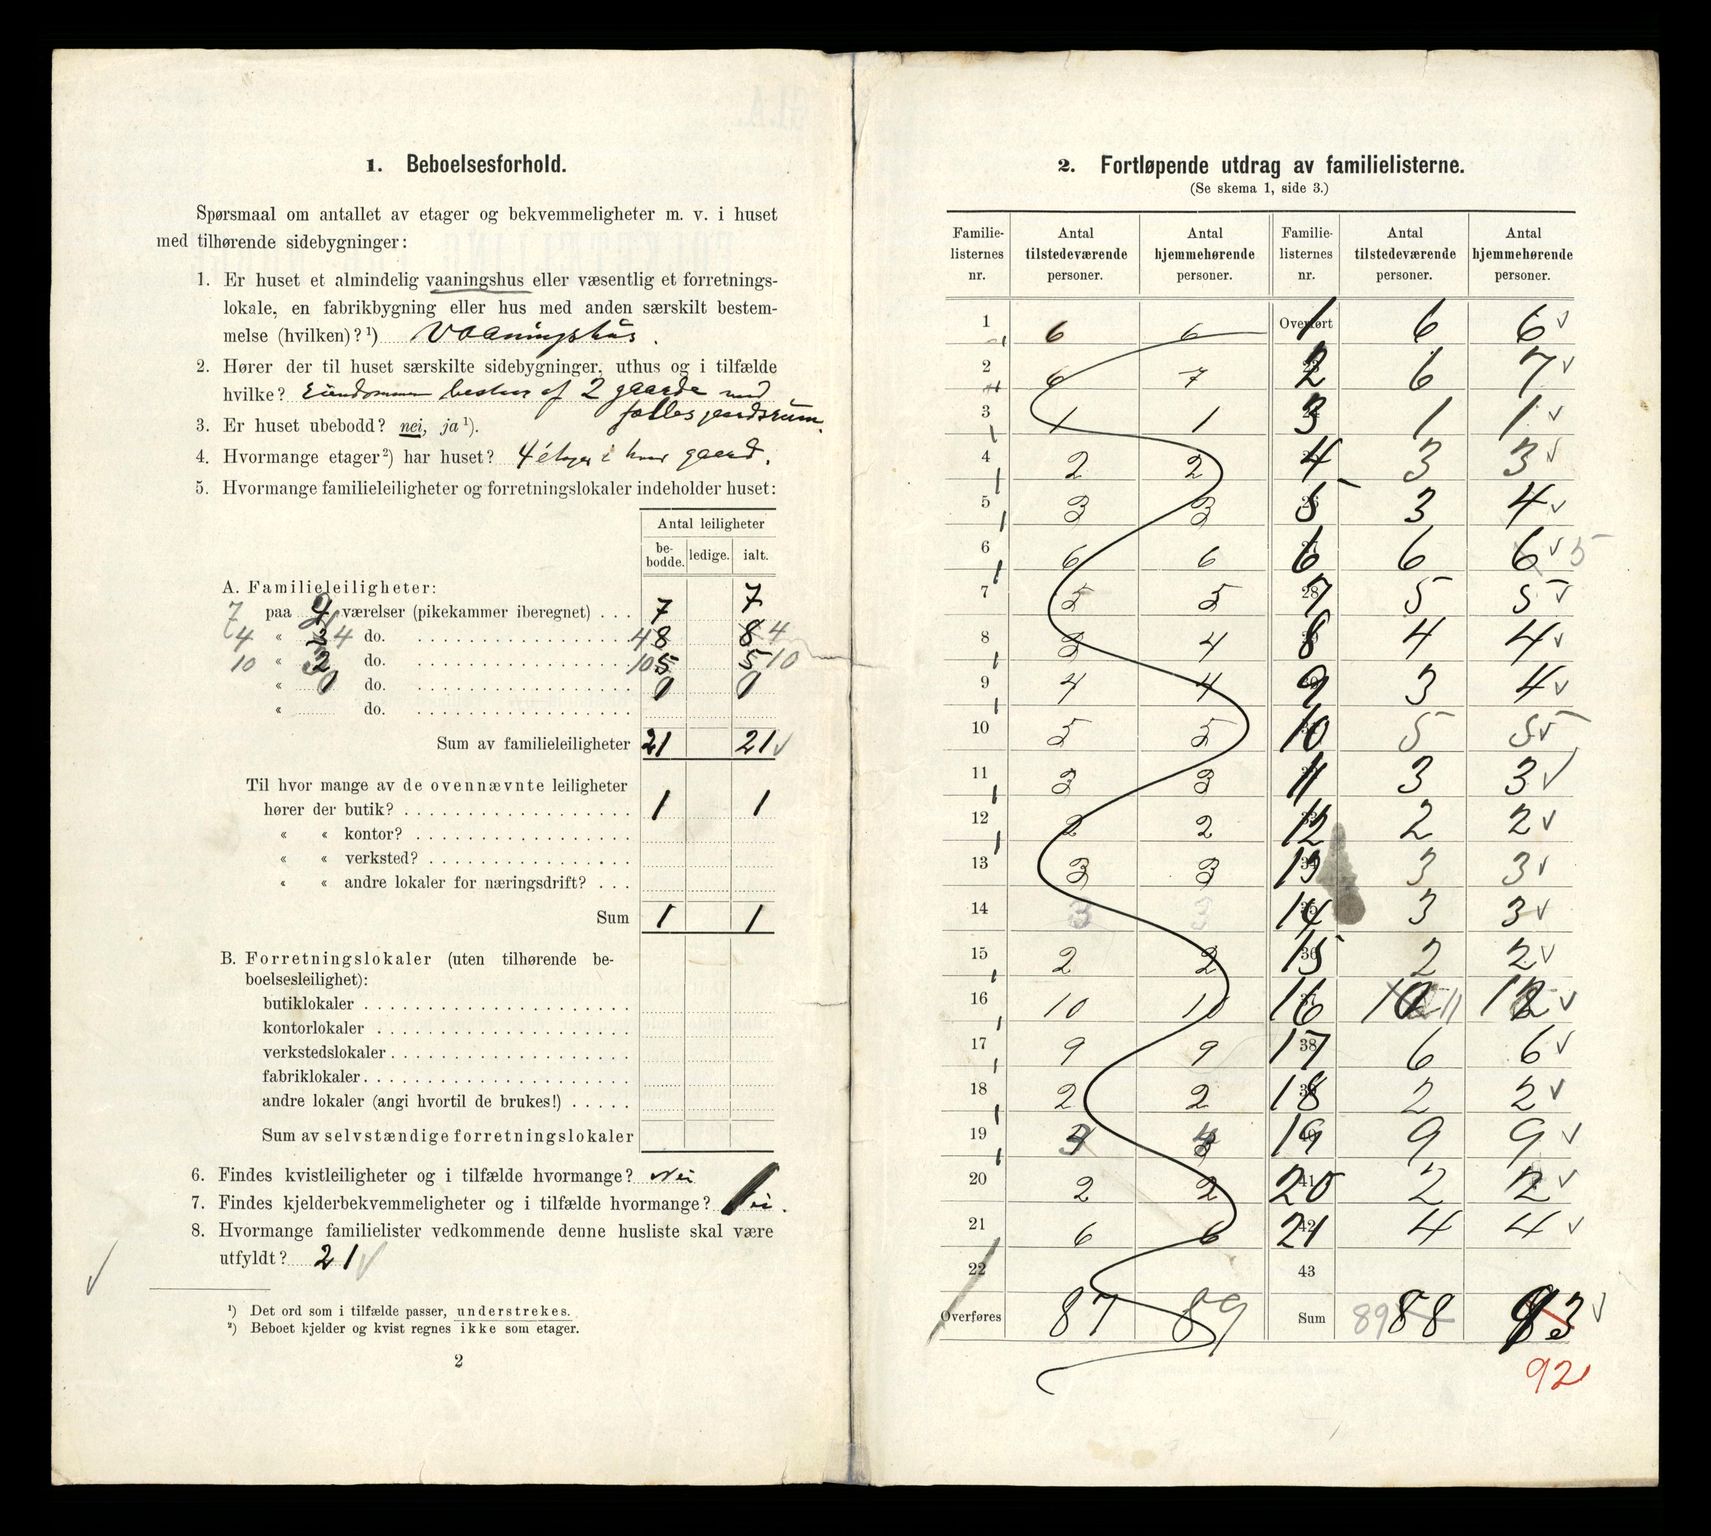 1. Beboelsesforhold.
Spørsmaal om antallet av etager og bekvemmeligheter m. v. i huset
med tilhørende sidebygninger:
1. Er huset et almindelig vaaningshus eller væsentlig et forretnings-
lokale, en fabrikbygning eller hus med anden særskilt bestem-
melse (hvilken)?¹) Vaaningshus.
2. Hører der til huset særskilte sidebygninger, uthus og i tilfælde
hvilke? Eiendommen bestaar af 2 gaarde med
fælles gaardsrum.
3. Er huset ubebodd? nei, ja¹).
4. Hvormange etager²) har huset? 4 étager i hver gaard.
5. Hvormange familieleiligheter og forretningslokaler indeholder huset:
Antal leiligheter
be-bodde. ledige. ialt.
A. Familieleiligheter:
7 paa 4 værelser (pikekammer iberegnet) . . . 7 7
4 « 3 4 do. 4 8 8 4
10 « 2 do. 10 5 5 10
« 0 do. 0 0
« do.
Sum av familieleiligheter 21 21 ✓
Til hvor mange av de ovennævnte leiligheter
hører der butik? 1 1
« « kontor?
« « verksted?
« « andre lokaler for næringsdrift? . . .
Sum 1 1
B. Forretningslokaler (uten tilhørende be-
boelsesleilighet):
butiklokaler
kontorlokaler
verkstedslokaler
fabriklokaler
andre lokaler (angi hvortil de brukes!)
Sum av selvstændige forretningslokaler
6. Findes kvistleiligheter og i tilfælde hvormange? Nei
7. Findes kjelderbekvemmeligheter og i tilfælde hvormange? Nei.
8. Hvormange familielister vedkommende denne husliste skal være
utfyldt? 21 ✓
¹) Det ord som i tilfælde passer, understrekes.
²) Beboet kjelder og kvist regnes ikke som etager.
2
2. Fortløpende utdrag av familielisterne.
(Se skema 1, side 3.)
Familie-listernes nr. Antal tilstedeværende personer. Antal hjemmehørende personer. Familie-listernes nr. Antal tilstedeværende personer. Antal hjemmehørende personer.
1 6 6 Overført 1 6 6 ✓
2 6 7 2 6 7 ✓
3 1 1 3 1 1 ✓
4 2 2 4 3 3 ✓
5 3 3 5 3 4 ✓
6 6 6 6 6 6 ✓ 5
7 5 5 28 7 5 5 ✓
8 3 4 8 4 4 ✓
9 4 4 9 3 4 ✓
10 5 5 10 5 5 ✓
11 3 3 11 3 3 ✓
12 2 2 12 2 2 ✓
13 3 3 13 3 3 ✓
14 3 3 14 3 3 ✓
15 2 2 36 15 2 2 ✓
16 10 10 16 11 12 ✓
17 9 9 38 17 6 6 ✓
18 2 2 18 2 2 ✓
19 3 19 9 9 ✓
20 2 2 41 20 2 2 ✓
21 6 6 42 21 4 4 ✓
22 43
Overføres 87 89 Sum 89 88 93 ✓
92